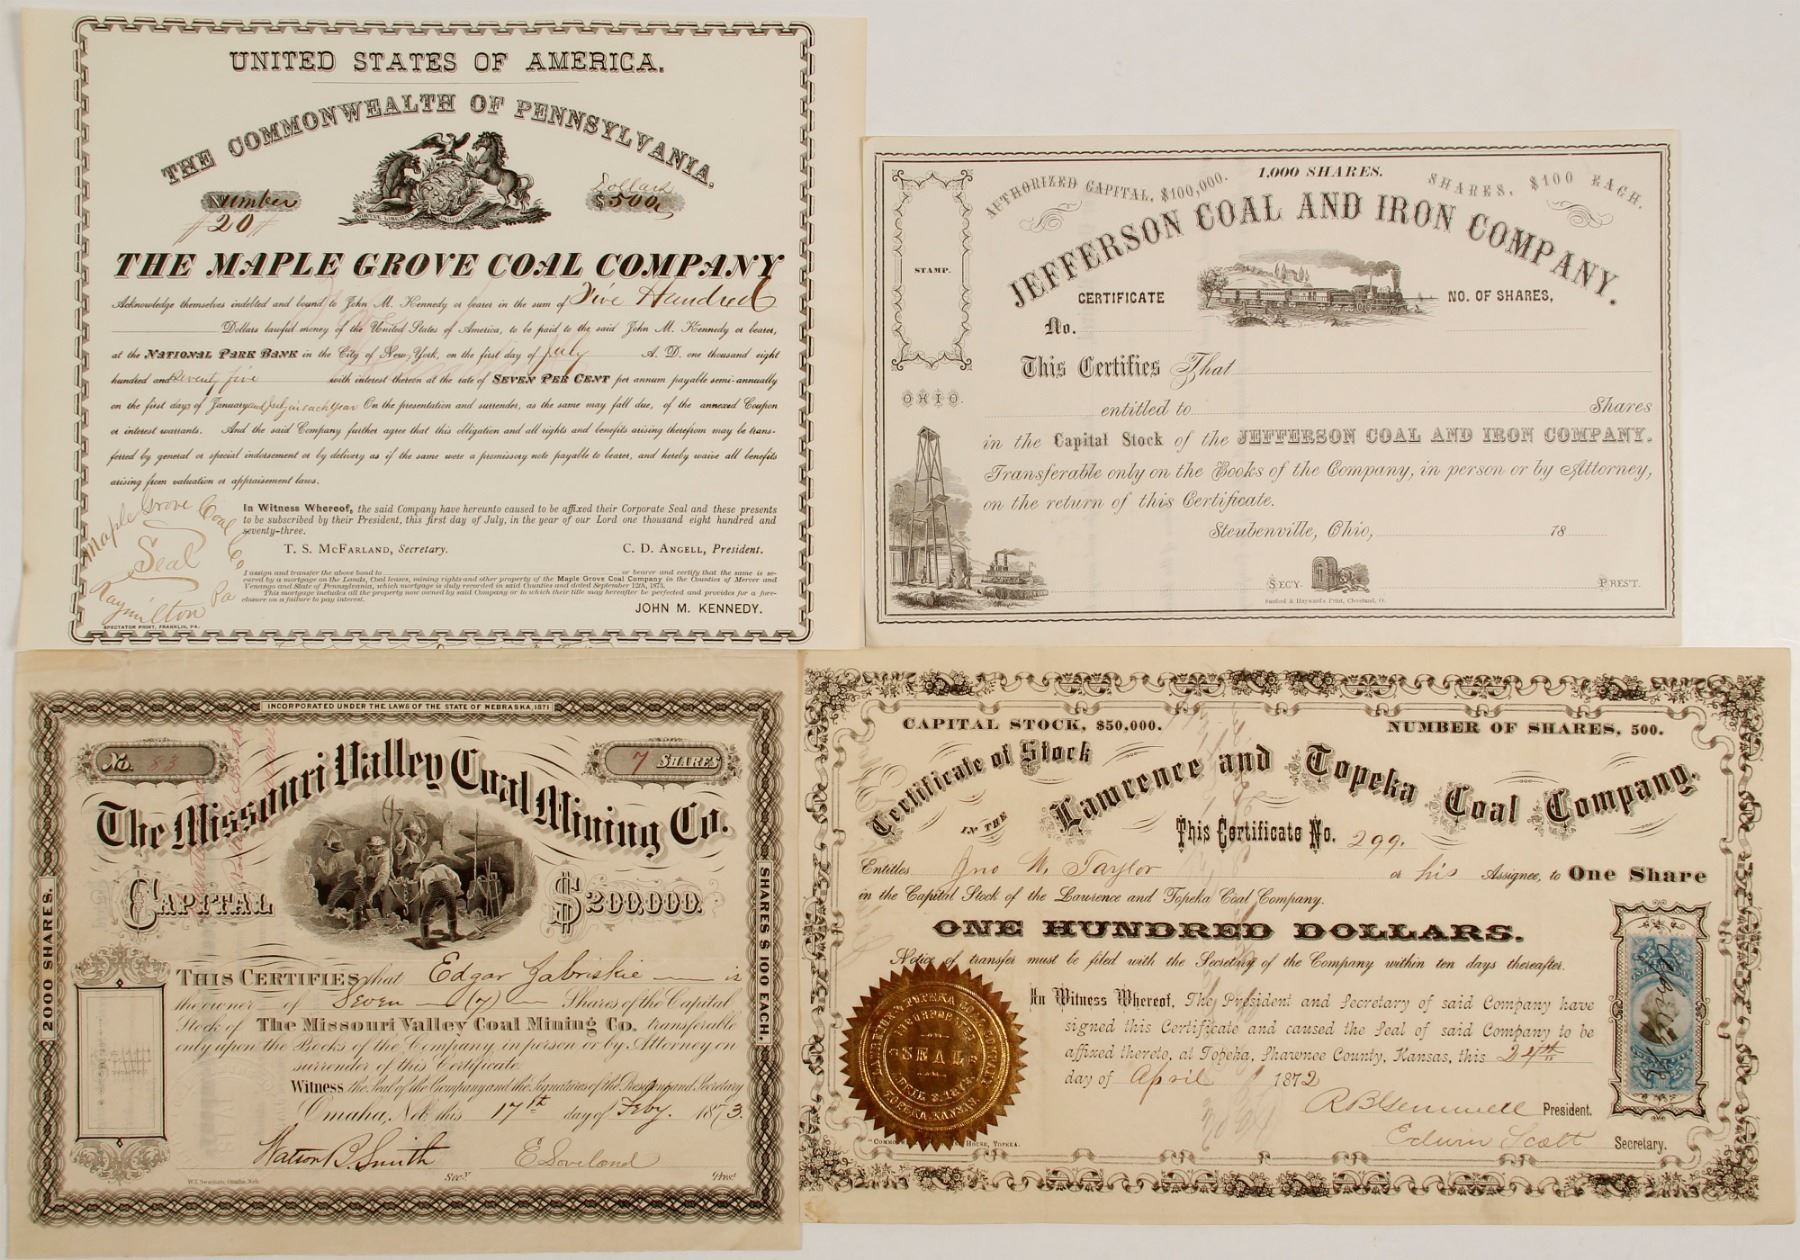 UNITED STATES OF AMERICA.
THE COMMONWEALTH OF PENNSYLVANIA.
Number
#20#
Dollars
$500
VIRTUE LIBERTY INDEPENDENCE
THE MAPLE GROVE COAL COMPANY
Acknowledge themselves indebted and bound to John M. Kennedy or bearer in the sum of Five Hundred
Dollars lawful money of the United States of America, to be paid to the said John M. Kennedy or bearer,
at the NATIONAL PARK BANK in the City of New York, on the first day of July A. D. one thousand eight
hundred and Seventy five with interest thereon at the rate of SEVEN PER CENT per annum payable semi-annually
on the first days of January and July in each year On the presentation and surrender, as the same may fall due, of the annexed Coupon
or interest warrants. And the said Company further agree that this obligation and all rights and benefits arising therefrom may be trans-
ferred by general or special indorsement or by delivery as if the same were a promissory note payable to bearer, and hereby waive all benefits
arising from valuation or appraisement laws.
In Witness Whereof, the said Company have hereunto caused to be affixed their Corporate Seal and these presents
to be subscribed by their President, this first day of July, in the year of our Lord one thousand eight hundred and
seventy-three.
T. S. McFARLAND, Secretary. C. D. ANGELL, President.
I assign and transfer the above bond to or bearer and certify that the same is se-
cured by a mortgage on the Lands, Coal leases, mining rights and other property of the Maple Grove Coal Company in the Counties of Mercer and
Venango and State of Pennsylvania, which mortgage is duly recorded in said Counties and dated September 12th, 1873.
This mortgage includes all the property now owned by said Company or to which their title may hereafter be perfected and provides for a fore-
closure on a failure to pay interest.
JOHN M. KENNEDY.
Maple Grove Coal Co
Seal
Raymilton Pa
SPECTATOR PRINT, FRANKLIN, PA.
AUTHORIZED CAPITAL, $100,000. 1,000 SHARES. SHARES, $100 EACH.
JEFFERSON COAL AND IRON COMPANY.
STAMP.
CERTIFICATE
No.
NO. OF SHARES,
This Certifies That
OHIO.
entitled to Shares
in the Capital Stock of the JEFFERSON COAL AND IRON COMPANY.
Transferable only on the Books of the Company, in person or by Attorney,
on the return of this Certificate.
Steubenville, Ohio, 18
SECY. PREST.
Sanford & Hayward's Print, Cleveland, O.
INCORPORATED UNDER THE LAWS OF THE STATE OF NEBRASKA, 1871
No. 83
7 SHARES
The Missouri Valley Coal Mining Co.
CAPITAL $200,000.
2000 SHARES.
SHARES $100 EACH.
THIS CERTIFIES that Edgar Zabriskie is
the owner of Seven (7) Shares of the Capital
Stock of The Missouri Valley Coal Mining Co. transferable
only upon the Books of the Company, in person or by Attorney on
surrender of this Certificate.
Witness the Seal of the Company and the Signatures of the President and Secretary
Omaha, Neb. this 17th day of Feby. 1873.
Watson B. Smith Secy. E. Loveland Prest.
CAPITAL STOCK, $50,000. NUMBER OF SHARES, 500.
Certificate of Stock
IN THE
Lawrence and Topeka Coal Company.
This Certificate No. 299.
Entitles Jno W. Taylor or his Assignee, to One Share
in the Capital Stock of the Lawrence and Topeka Coal Company.
ONE HUNDRED DOLLARS.
Notice of transfer must be filed with the Secretary of the Company within ten days thereafter.
In Witness Whereof, The President and Secretary of said Company have
signed this Certificate and caused the Seal of said Company to be
affixed thereto, at Topeka, Shawnee County, Kansas, this 24th
day of April 1872
President.
Edwin Scott Secretary.
LAWRENCE & TOPEKA COAL COMPANY.
INCORPORATED
SEAL
TOPEKA, KANSAS.
HOUSE, TOPEKA.